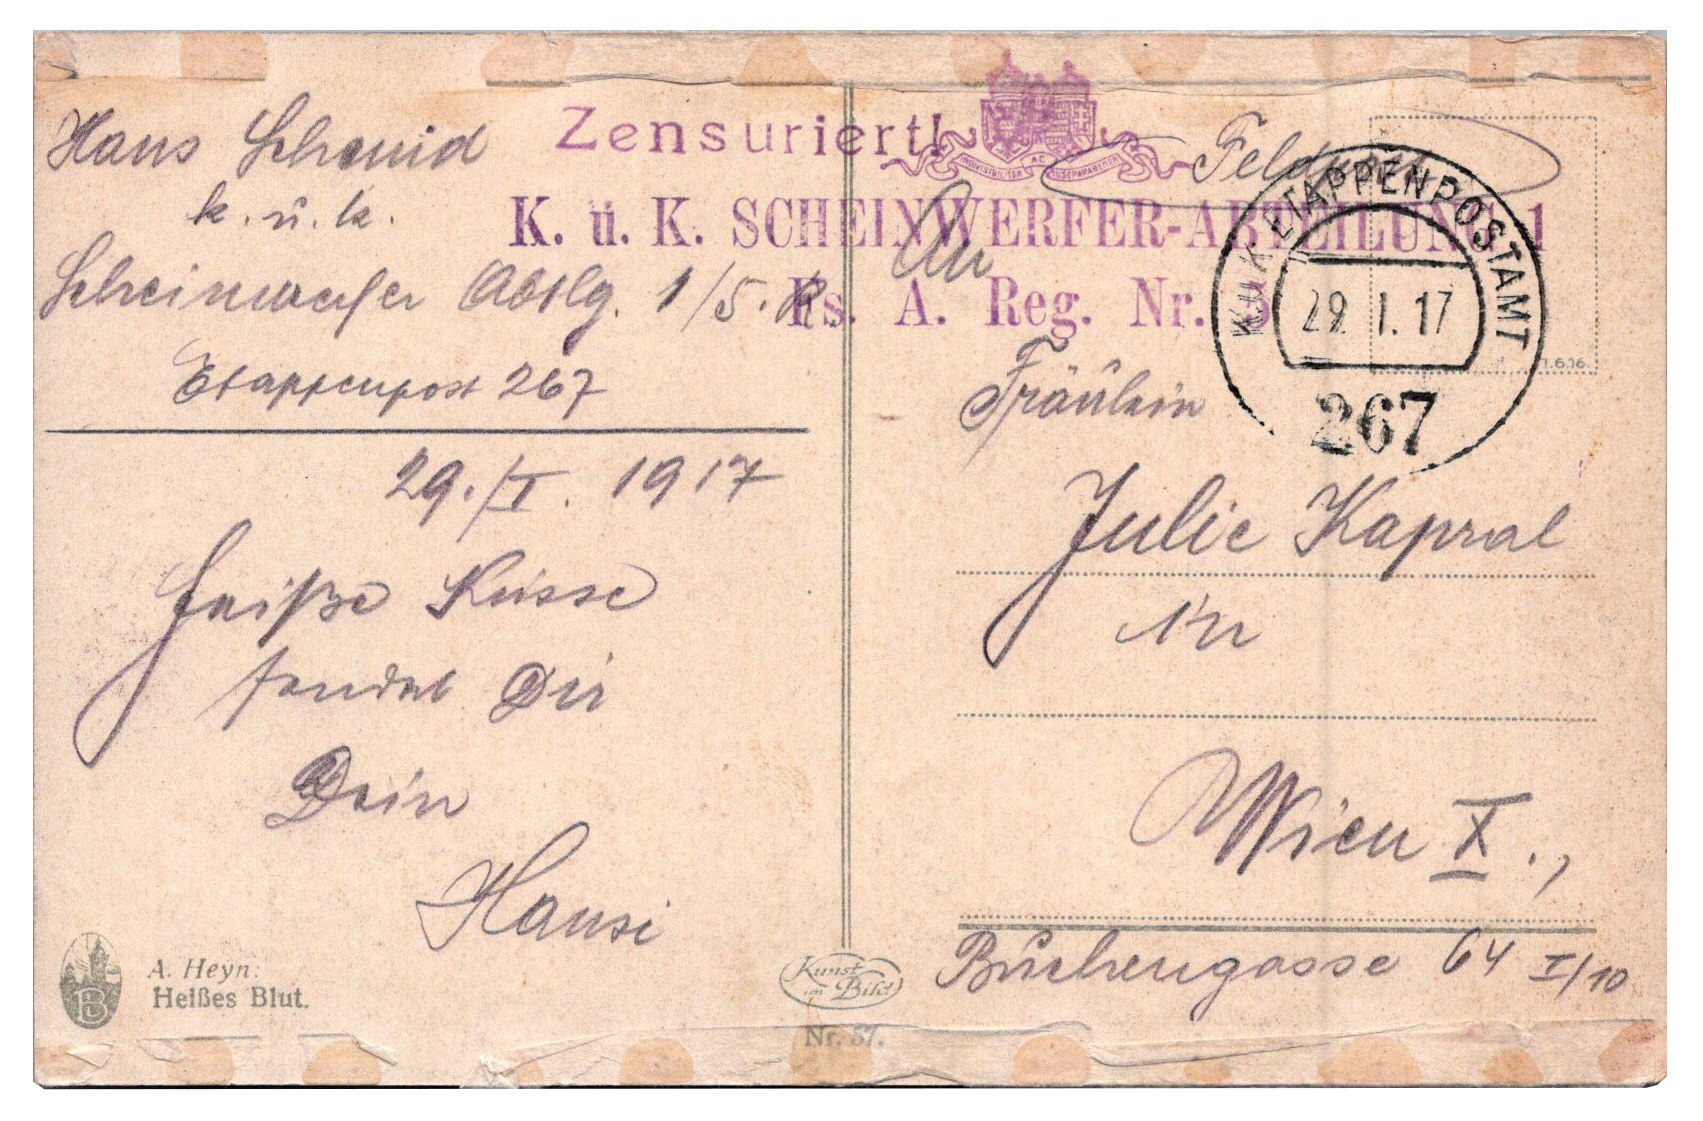 Hans Schmid
k. u. k.
Scheinwerfer Abtlg. 1/5.
Etappenpost 267
29./I. 1917
Heiße Küsse
sendet Dir
Dein
Hansi
A. Heyn:
Heißes Blut.
Zensuriert!
INDIVISIBILITER AC INSEPARABILITER
K. u. K. SCHEINWERFER-ABTEILUNG 1
Fs. A. Reg. Nr. 5
Feldpost
K.u.K. ETAPPENPOSTAMT
29. I. 17
267
1.6.16.
An
Fräulein
Julie Kapral
in
Wien X.,
Buchengasse 64 I/10
Kunst
im Bild
Nr. 57.